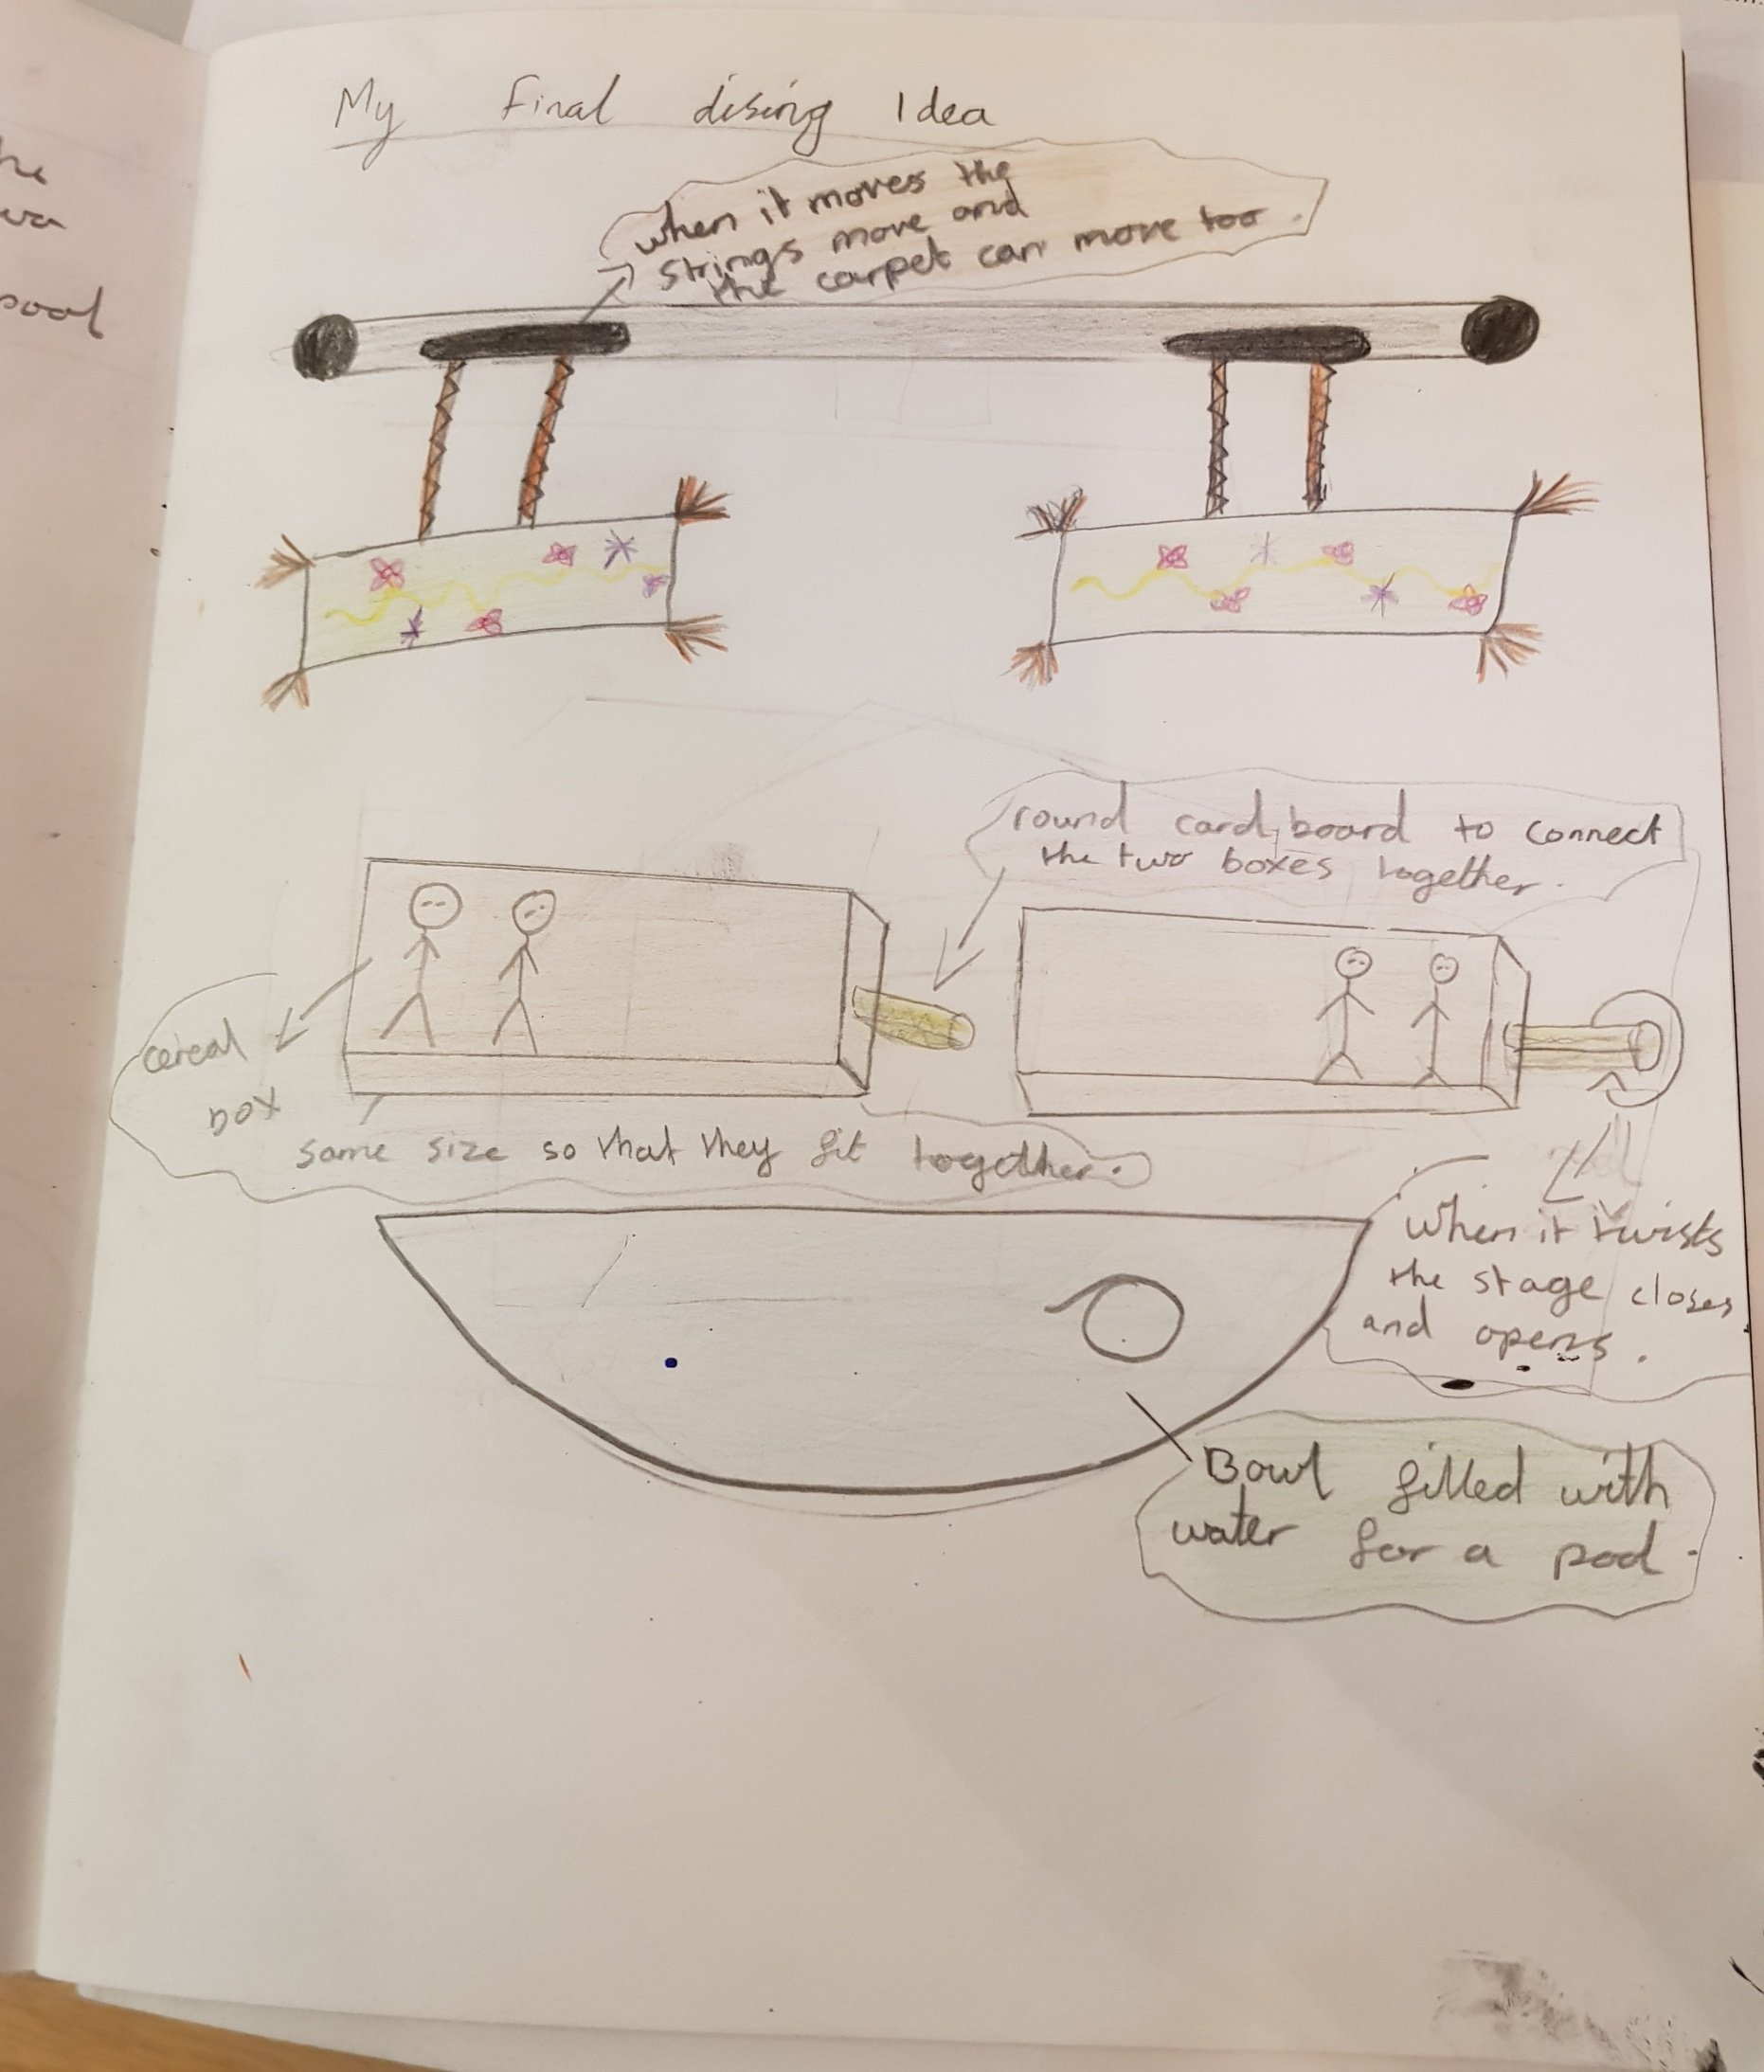 he
wa
pool
My final dising Idea
when it moves the
strings move and
the carpet can move too.
round card board to connect
the two boxes together.
cereal
box
same size so that they fit together.
when it twists
the stage closes
and opens.
Bowl filled with
water for a pool.